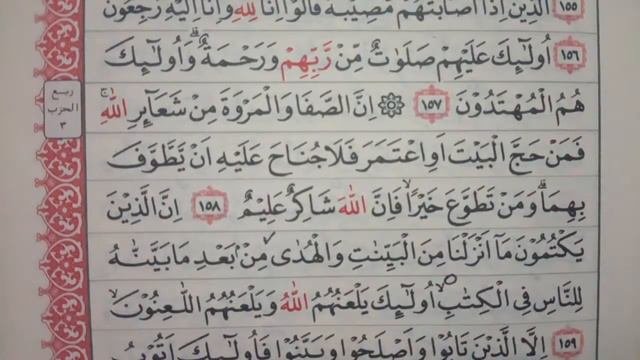 الَّذِيْنَ اِذَآ اَصَابَتْهُمْ مُّصِيْبَةٌ قَالُوْٓا اِنَّا لِلّٰهِ وَاِنَّآ اِلَيْهِ رٰجِعُوْنَ ١٥٥
١٥٦ اُولٰۤىِٕكَ عَلَيْهِمْ صَلَوٰتٌ مِّنْ رَّبِّهِمْ وَرَحْمَةٌۗ وَاُولٰۤىِٕكَ
هُمُ الْمُهْتَدُوْنَ ١٥٧ ۞ اِنَّ الصَّفَا وَالْمَرْوَةَ مِنْ شَعَاۤىِٕرِ اللّٰهِۚ
فَمَنْ حَجَّ الْبَيْتَ اَوِاعْتَمَرَ فَلَاجُنَاحَ عَلَيْهِ اَنْ يَّطَّوَّفَ
بِهِمَاۗ وَمَنْ تَطَوَّعَ خَيْرًاۙ فَاِنَّ اللّٰهَ شَاكِرٌ عَلِيْمٌ ١٥٨ اِنَّ الَّذِيْنَ
يَكْتُمُوْنَ مَآ اَنْزَلْنَا مِنَ الْبَيِّنٰتِ وَالْهُدٰى مِنْۢ بَعْدِ مَا بَيَّنّٰهُ
لِلنَّاسِ فِى الْكِتٰبِۙ اُولٰۤىِٕكَ يَلْعَنُهُمُ اللّٰهُ وَيَلْعَنُهُمُ اللّٰعِنُوْنَۙ
١٥٩ اِلَّا الَّذِيْنَ تَابُوْا وَاَصْلَحُوْا وَبَيَّنُوْا فَاُولٰۤىِٕكَ اَتُوْبُ
ربع
الحزب
٣